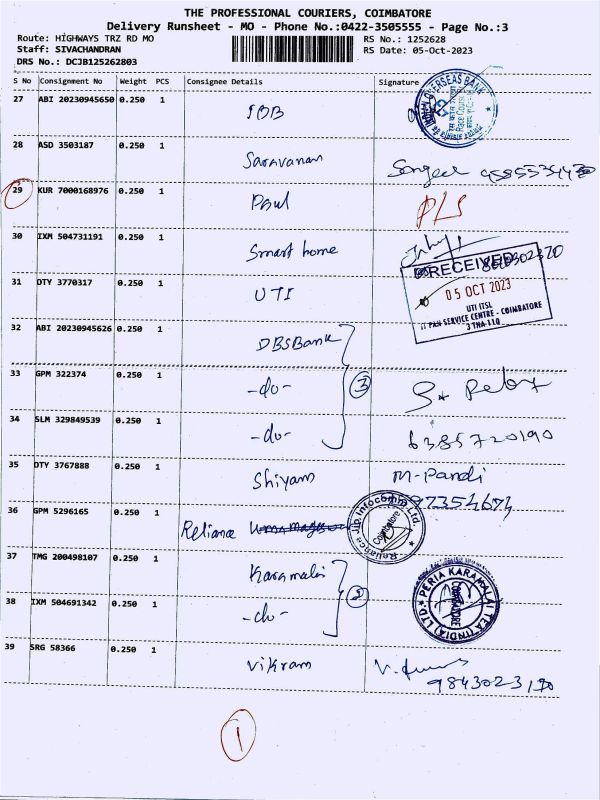 THE PROFESSIONAL COURIERS, COIMBATORE
Delivery Runsheet - MO - Phone No.:0422-3505555 - Page No.:3
Route: HIGHWAYS TRZ RD MO RS No.: 1252628
Staff: SIVACHANDRAN RS Date: 05-Oct-2023
DRS No.: DCJB125262803
S No Consignment No Weight PCS Consignee Details Signature
27 ABI 20230945650 0.250 1 IOB OVERSEAS BANK
28 ASD 3503187 0.250 1 Saravanan
29 KUR 7000168976 0.250 1 Paul PLS
30 IXM 504731191 0.250 1 Smart home
RECEIVED
31 DTY 3770317 0.250 1 UTI 05 OCT 2023
UTI ITSL
IT PAN SERVICE CENTRE - COIMBATORE
32 ABI 20230945626 0.250 1 DBSBank
33 GPM 322374 0.250 1 -do- 3
34 SLM 329849539 0.250 1 -do- 6385720190
35 DTY 3767888 0.250 1 Shiyam M-Pandi
36 GPM 5296165 0.250 1 Reliance Reliance Jio Infocomm Ltd. Coimbatore
37 TMG 200498107 0.250 1 Karamalai
38 IXM 504691342 0.250 1 -do- 2 PERIA KARAMALAI TEA (INDIA) LTD. COIMBATORE
39 SRG 58366 0.250 1 Vikram
1